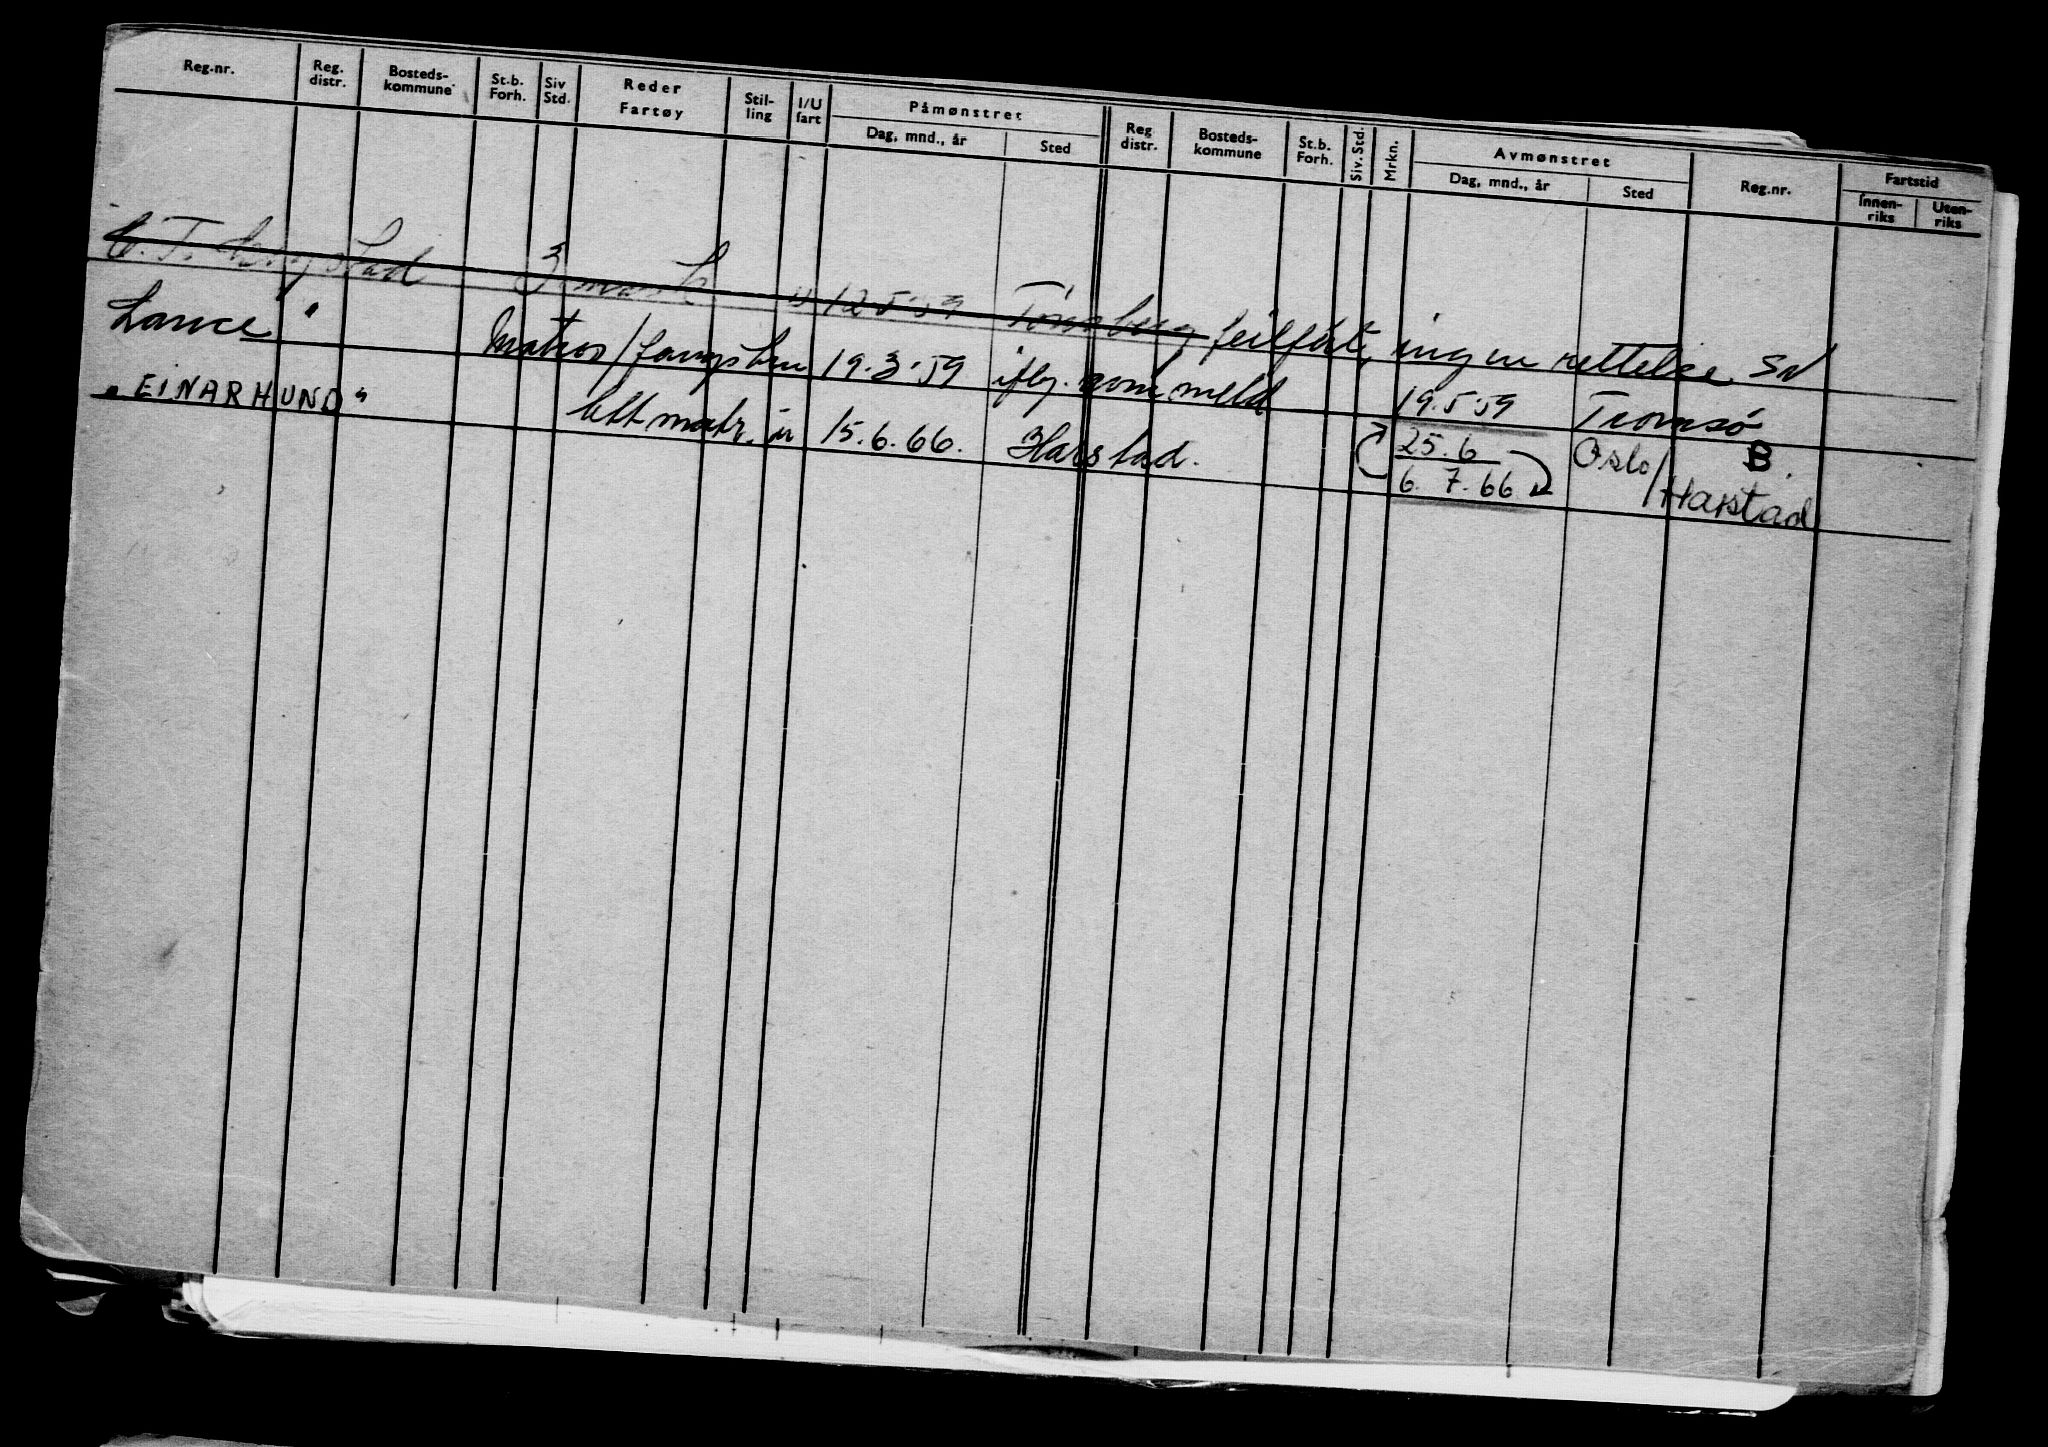 Reg.nr. Reg. distr. Bosteds-kommune St.b. Forh. Siv Std. Reder Fartøy Stil-ling I/U fart Påmønstret Dag, mnd., år Sted Reg distr. Bosteds-kommune St.b. Forh. Siv. Std. Mrkn. Avmønstret Dag, mnd., år Sted Reg.nr. Fartstid Innen-riks Uten-riks
12.5.59 Tønsberg feilført, ingen rettelse
Lance " Matros / 19.3.59 meld 19.5.59 Tromsø
"EINAR HUND" lettmatr. u 15.6.66. Harstad. 25.6 Oslo / B.
6.7.66 Harstad